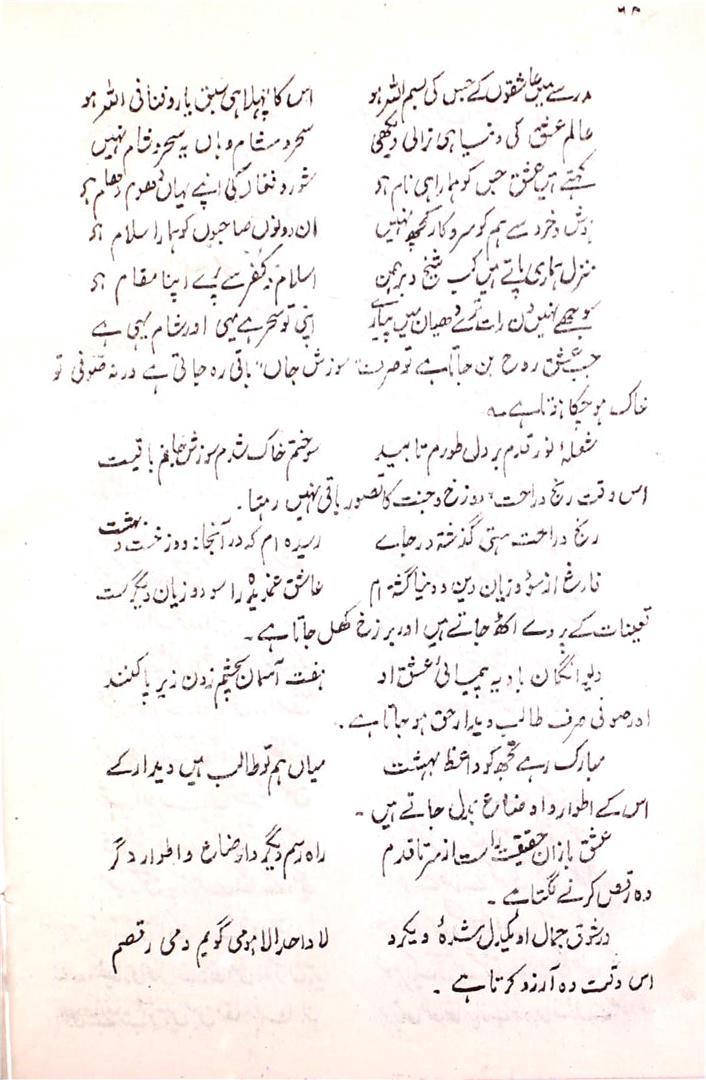 ۶۴
مدرسے میں عاشقوں کے جس کی بسم اللہ ہو اس کا پہلا ہی سبق یارو فنا فی اللہ ہو
عالم عشق کی دنیا ہی نرالی دیکھی سحر و شام وہاں یہ سحر و شام نہیں
کہتے ہیں عشق جس کو ہمارا ہی نام ہے شور و فغاں کی اپنے یہاں دھوم دھام ہے
ہوش و خرد سے ہم کو سروکار کچھ نہیں ان دونوں صاحبوں کو ہمارا سلام ہے
منزل ہماری پاتے ہیں کب شیخ و برہمن اسلام و کفر سے پرے اپنا مقام ہے
سوجھے نہیں دن رات ترے دھیان میں پیارے اپنی تو سحر ہے یہی اور شام یہی ہے
جب عشق روح بن جاتا ہے تو صرف "سوزش جاں" باقی رہ جاتی ہے ورنہ صوفی تو
خاک ہو چکا ہوتا ہے۔
شعلۂ نور قدم بر دل طورم تابید سوختم خاک شدم سوزش جانم باقیست
اس وقت رنج و راحت، دوزخ و جنت کا تصور باقی نہیں رہتا۔
رنج و راحت ہستی گذشتہ در جاے رسیدہ ام کہ در آنجا نہ دوزخست و بہشت
فارغ از سود و زیان دین و دنیا گشتہ ام عاشق غمدیدہ را سود و زیان دیگرست
تعینات کے پردے اٹھ جاتے ہیں اور برزخ کھل جاتا ہے۔
دیوانگان بادیہ پیمائے عشق او ہفت آسمان بچشم زدن زیر پا کنند
اور صوفی صرف طالب دیدار حق ہو جاتا ہے۔
مبارک رہے تجھ کو واعظ بہشت میاں ہم تو طالب ہیں دیدار کے
اس کے اطوار و اوضاع بدل جاتے ہیں۔
عشق بازان حقیقت راست از سر تا قدم راہ رسم دیگر و اوضاع و اطوار دگر
وہ رقص کرنے لگتا ہے۔
در شوق جمال او یکدل شدۂ و یکرو لا واحد الا ہو می گویم و می رقصم
اس وقت وہ آرزو کرتا ہے۔